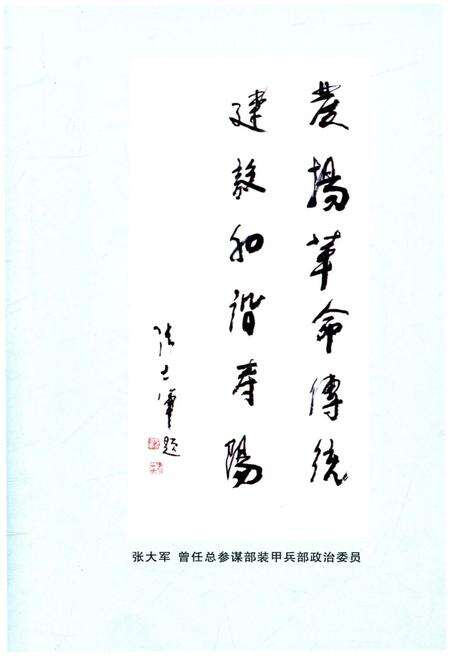 发揚革命傳統
建設和谐寿陽
张大軍题
张大军 曾任总参谋部装甲兵部政治委员